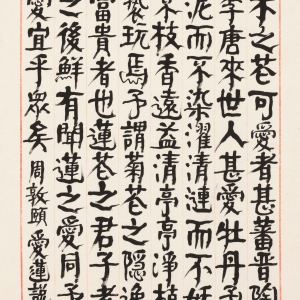 木之花可愛者甚蕃晉陶
李唐來世人甚愛牡丹予
泥而不染濯清漣而不妖
不枝香遠益清亭亭淨植
褻玩焉予謂菊花之隱逸
富貴者也蓮花之君子者
之後鮮有聞蓮之愛同予
愛宜乎眾矣 周敦頤 愛蓮說